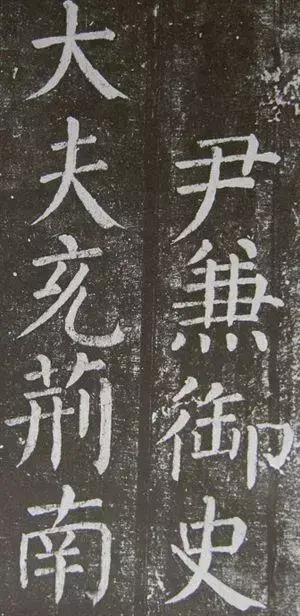 尹兼御史
大夫充荊南